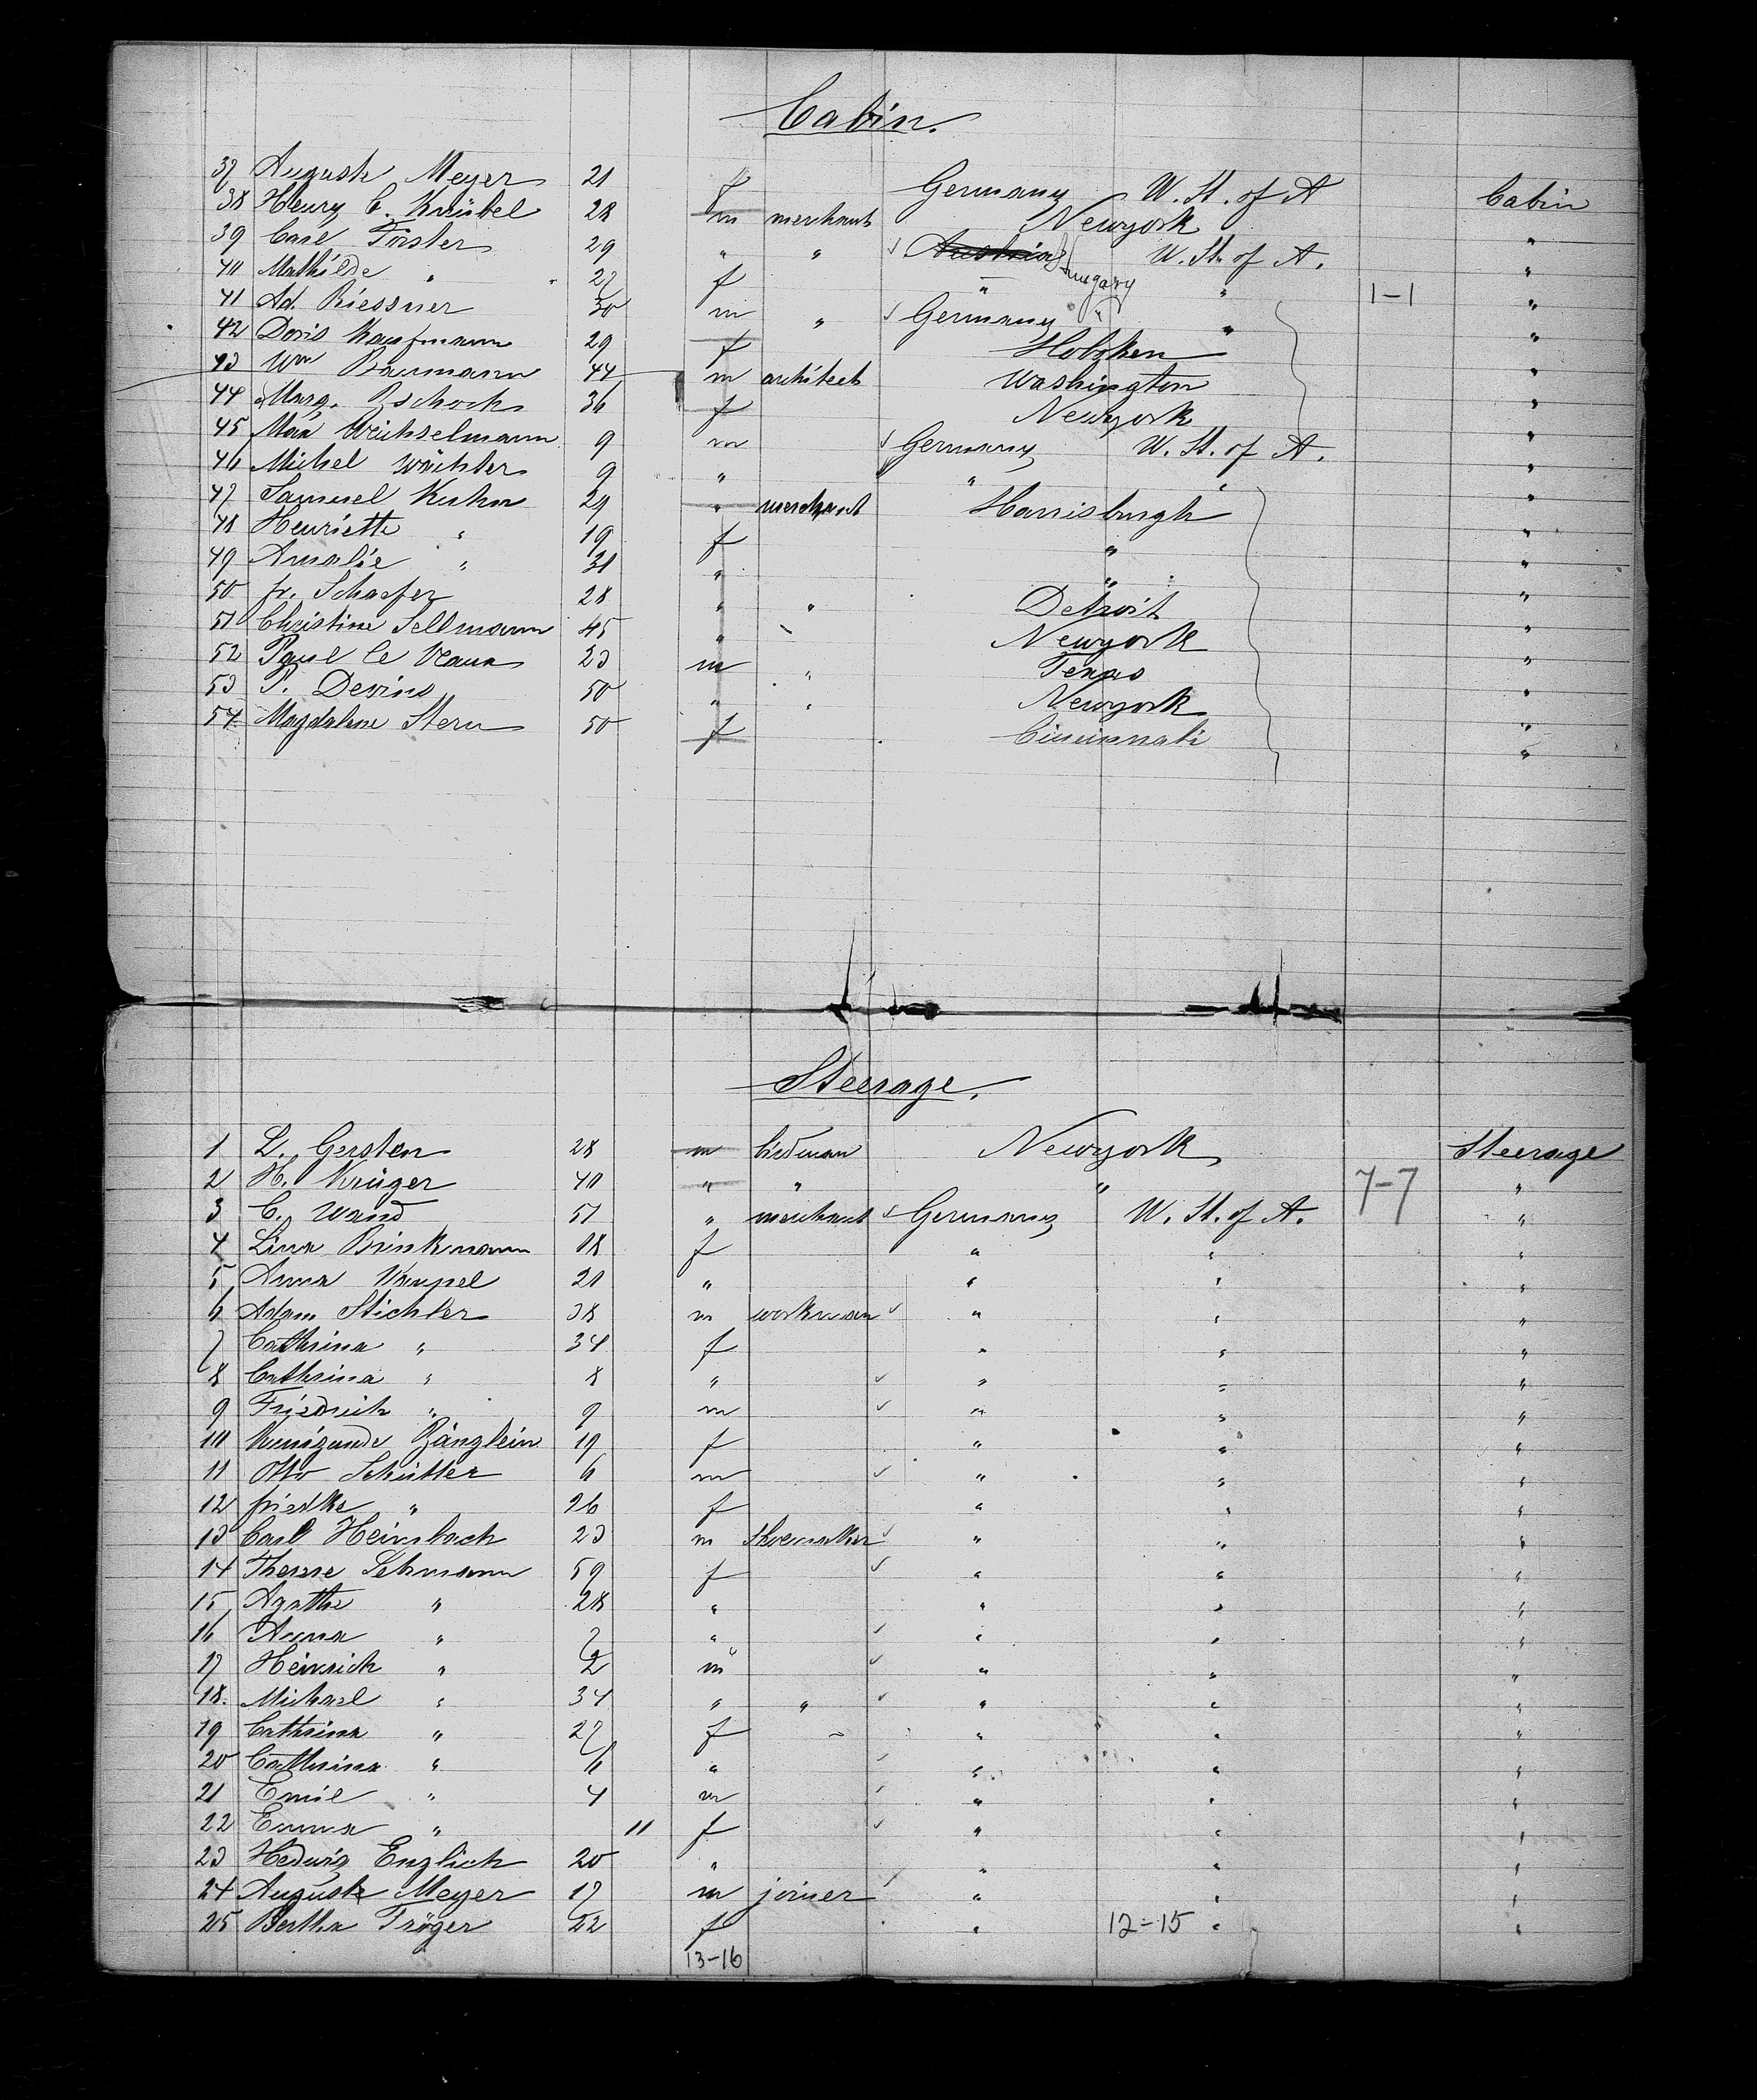 Cabin.
37 Auguste Meyer 21 f Germany U. St. of A Cabin
38 Henry C. Knübel 28 m merchant Newyork "
39 Carl Forster 29 " " ✓ Austria Hungary U. St. of A. "
40 Mathilde " 27 f " " 1-1 "
41 Ad. Riessner 30 m " ✓ Germany " "
42 Doris Kaufmann 29 f Hoboken "
43 Wm Baumann 44 m architect Washington "
44 Marg. Zschoch 36 f Newyork "
45 Max Weichselmann 9 m ✓ Germany U. St. of A. "
46 Michel Wächter 9 " " " "
47 Samuel Kuhn 29 " merchant Harrisburgh "
48 Henriette " 19 f " "
49 Amalie " 31 " " "
50 fr. Schaefer 28 " " Detroit "
51 Christine Sellmann 45 " Newyork "
52 Paul le 23 m " Texas "
53 P. Devins 50 " " Newyork "
54 Magdalene Stern 50 f Cincinnati "
Steerage.
1 L. Gersten 28 m birdman Newyork Steerage
2 H. Krüger 40 " " " 7-7 "
3 C. Wand 51 " merchant ✓ Germany U. St. of A. "
4 Lina Brinkmann 18 f " " "
5 Anna 21 " " " "
6 Adam Stichler 38 m workman ✓ " " "
7 Cathrina " 34 f " " "
8 Cathrina " 8 " ✓ " " "
9 Friedrich " 9 m ✓ " " "
10 Kunigunde Zänglein 19 f " " "
11 Otto Schütter 6 m ✓ " " "
12 friedke " 26 f " " "
13 Carl Heimbach 23 m Shoemaker ✓ " " "
14 Therese Lehmann 59 f ✓ " " "
15 Agathe " 28 " " " "
16 Anna " 7 " ✓ " " "
17 Heinrich " 2 m ✓ " " "
18. Michael " 34 " " ✓ " " "
19 Cathrina " 27 f " " "
20 Cathrina " 6 " ✓ " " "
21 Emil " 4 m ✓ " " "
22 Emma " 11 f ✓ " " "
23 Hedwig Englich 20 " " " "
24 Auguste Meyer 17 m joiner ✓ " " "
25 Bertha Tröger 22 f " 12-15 " "
13-16